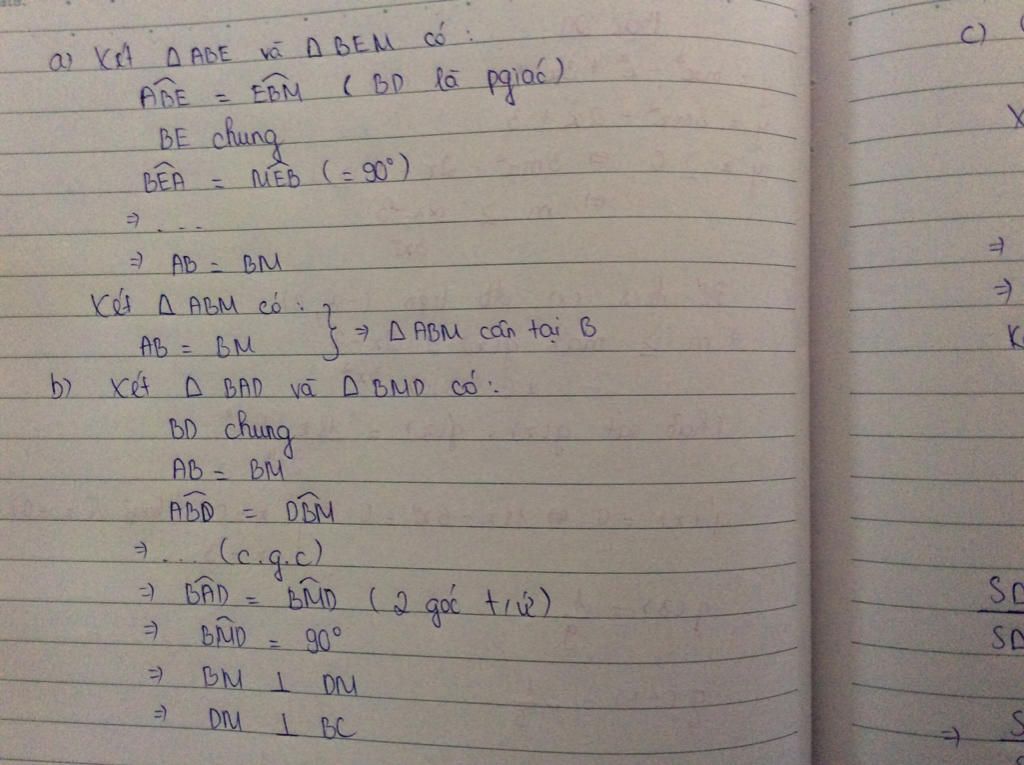 a) Xét Δ ABE và Δ BEM có :
ABE = EBM ( BD là pgiác)
BE chung
BEA = MEB (= 90°)
⇒ . . .
⇒ AB = BM
Xét Δ ABM có :
AB = BM } ⇒ Δ ABM cân tại B
b) Xét Δ BAD và Δ BMD có :
BD chung
AB = BM
ABD = DBM
⇒ .... (c.g.c)
⇒ BAD = BMD ( 2 góc t/ứ)
⇒ BMD = 90°
⇒ BM ⊥ DM
⇒ DM ⊥ BC
c)
X
⇒
⇒
K
SD
SD
⇒ S